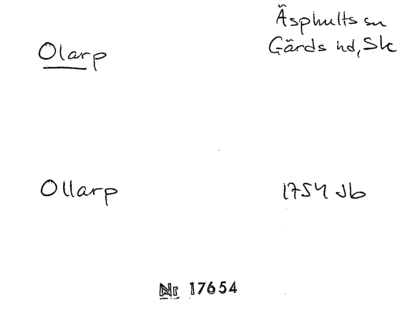 Äsphults sn
Olarp
Gärds hd, Sk
Ollarp
1754 Jb
Nr 17654